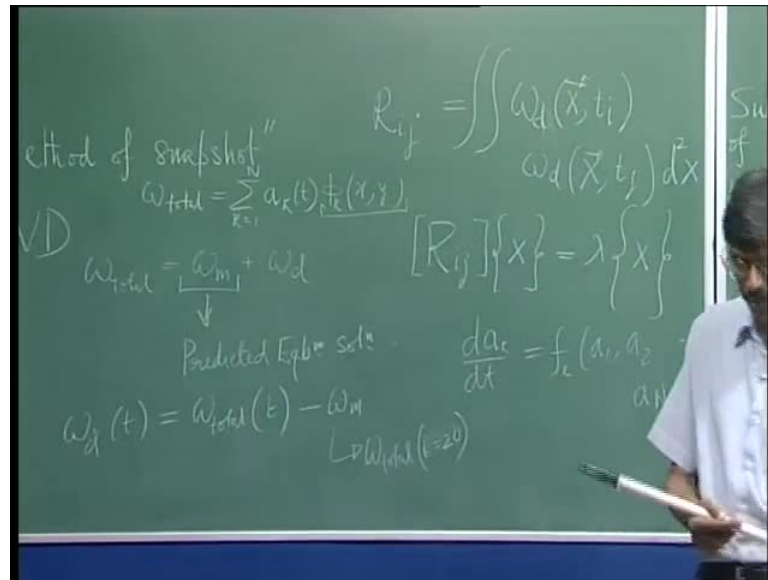 ethod of snapshot"
ω_total = Σ_{k=1}^{N} a_k(t) ϕ_k(x, y)
VD
ω_total = ω_m + ω_d
↓
Predicted Eqbᵐ solⁿ.
ω_d(t) = ω_total(t) − ω_m
↳ ω_total(t=20)
R_ij = ∬ ω_d(x⃗, t_i)
ω_d(x⃗, t_j) d²x
[R_ij]{X} = λ{X}
da_k/dt = f_k(a_1, a_2
a_N
Su
of